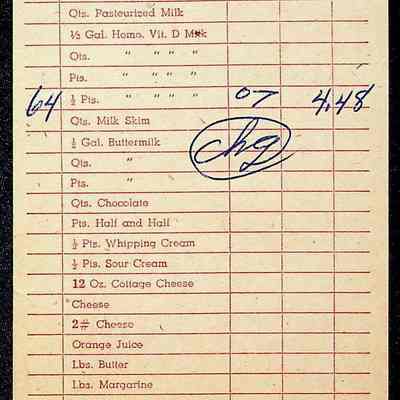 Qts. Pasteurized Milk
½ Gal. Homo. Vit. D Milk
Qts. " " " "
Pts. " " " "
64 ½ Pts. " " " " 07 4.48
Qts. Milk Skim
½ Gal. Buttermilk chg
Qts. "
Pts. "
Qts. Chocolate
Pts. Half and Half
½ Pts. Whipping Cream
½ Pts. Sour Cream
12 Oz. Cottage Cheese
Cheese
2# Cheese
Orange Juice
Lbs. Butter
Lbs. Margarine